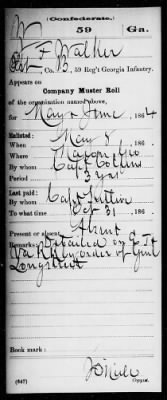 (Confederate.)
W 59 Ga.
F Walker
Co. B, 59 Reg't Georgia Infantry.
Appears on
Company Muster Roll
of the organization named above,
for May & June, 1864
Enlisted:
When May 8, 186
Where Macon Geo
By whom Capt Collins
Period 3 years
Last paid:
By whom Capt
To what time Oct 31, 186
Present or absent Absent
Remarks: Detailed on
Va by order of Genl
Longstreet
Book mark:
(647) Copyist.